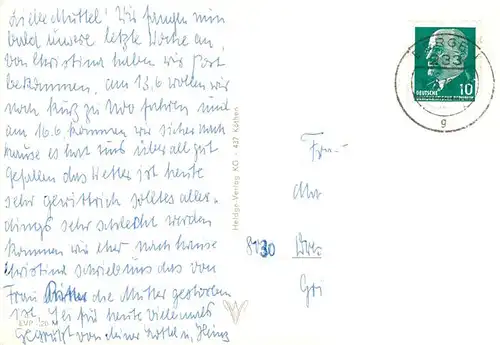 Liebe Muttel! Wir fangen nun
bald unsere letzte Woche an,
von Christina haben wir Post
bekommen. am 13.6 wollen wir
noch kurz zu Udo fahren und
am 16.6. kommen wir sicher nach
hause es hat uns überall gut
gefallen das Wetter ist heute
sehr gewittrich solltes aller-
dings sehr schlecht werden
kommen wir eher nach hause
Christina schrieb uns das von
Frau die Mutter gestorben
ist. Sei für heute vielemals
gegrüßt von deiner u. Heinz
33
DEUTSCHE
10
g
Heldge-Verlag KG - 437 Köthen
Frau
8130